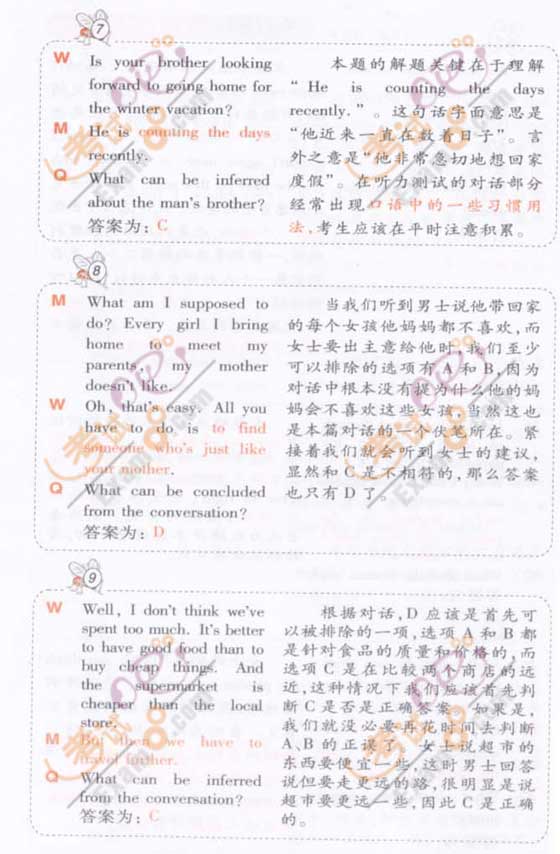 7
W Is your brother looking
forward to going home for
the winter vacation?
M He is counting the days
recently.
Q What can be inferred
about the man's brother?
答案为：C
本题的解题关键在于理解
“He is counting the days
recently.”。这句话字面意思是
“他近来一直在数着日子”。言
外之意是“他非常急切地想回家
度假”。在听力测试的对话部分
经常出现口语中的一些习惯用
法，考生应该在平时注意积累。
8
M What am I supposed to
do? Every girl I bring
home to meet my
parents, my mother
doesn't like.
W Oh, that's easy. All you
have to do is to find
someone who's just like
your mother.
Q What can be concluded
from the conversation?
答案为：D
当我们听到男士说他带回家
的每个女孩他妈妈都不喜欢，而
女士要出主意给他时，我们至少
可以排除的选项有 A 和 B，因为
对话中根本没有提为什么他的妈
妈会不喜欢这些女孩，当然这也
是本篇对话的一个伏笔所在。紧
接着我们就会听到女士的建议，
显然和 C 是不相符的，那么答案
也只有 D 了。
9
W Well, I don't think we've
spent too much. It's better
to have good food than to
buy cheap things. And
the supermarket is
cheaper than the local
store.
M But then we have to
travel further.
Q What can be inferred
from the conversation?
答案为：C
根据对话，D 应该是首先可
以被排除的一项，选项 A 和 B 都
是针对食品的质量和价格的，而
选项 C 是在比较两个商店的远
近，这种情况下我们应该首先判
断 C 是否是正确答案，如果是，
我们就没必要再花时间去判断
A、B 的正误了。女士说超市的
东西要便宜一些，这时男士回答
说但要走更远的路，很明显是说
超市要更远一些，因此 C 是正确
的。